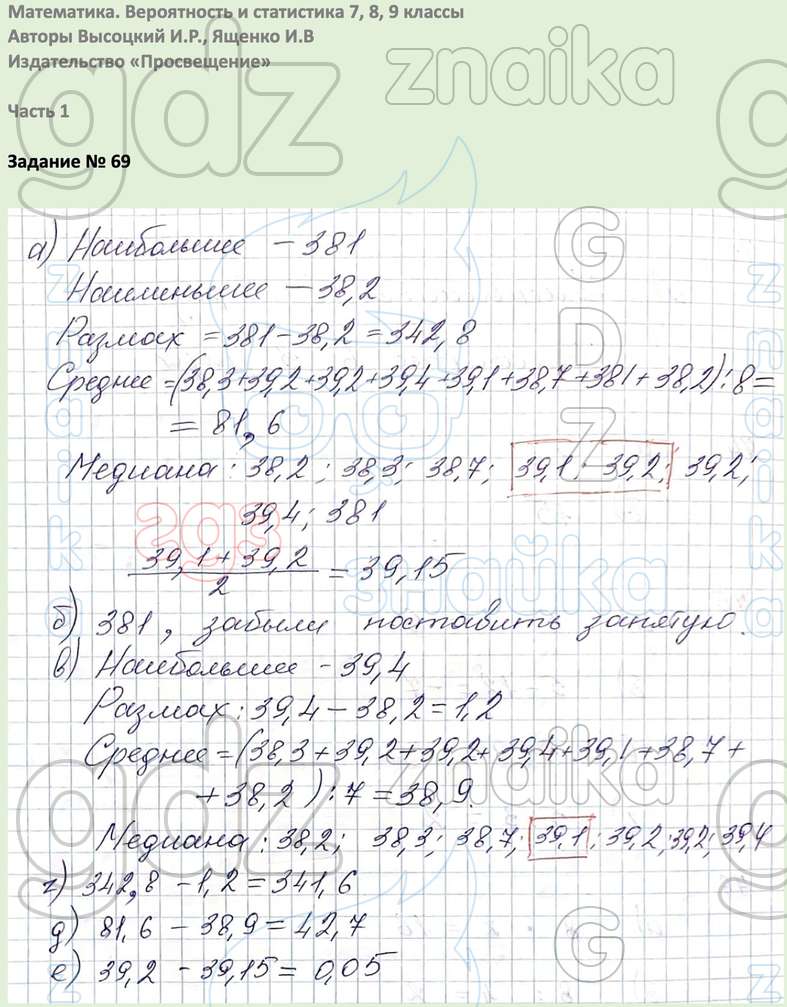 Математика. Вероятность и статистика 7, 8, 9 классы
Авторы Высоцкий И.Р., Ященко И.В
Издательство «Просвещение»
Часть 1
Задание № 69
gdz znaika
а) Наибольшее – 381
Наименьшее – 38,2
Размах = 381 – 38,2 = 342,8
Среднее = (38,3+39,2+39,2+39,4+39,1+38,7+381+38,2):8=
= 81,6
Медиана: 38,2; 38,3; 38,7; 39,1; 39,2; 39,2;
39,4; 381
39,1 + 39,2
2
= 39,15
б) 381, забыли поставить запятую.
в) Наибольшее - 39,4
Размах: 39,4 – 38,2 = 1,2
Среднее = (38,3+39,2+39,2+39,4+39,1+38,7+
+38,2):7=38,9.
Медиана: 38,2; 38,3; 38,7; 39,1; 39,2; 39,2; 39,4
г) 342,8 – 1,2 = 341,6
д) 81,6 – 38,9 = 42,7
е) 39,2 – 39,15 = 0,05
GDZ
знайка
gdz znaika